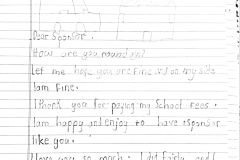 Dear Sponsor.
How are you
Let me hope you are fine and on my side
I am fine.
I thank you for paying my school fees.
I am happy and enjoy to have sponsor
like you.
I love you so much. I did fairly and I